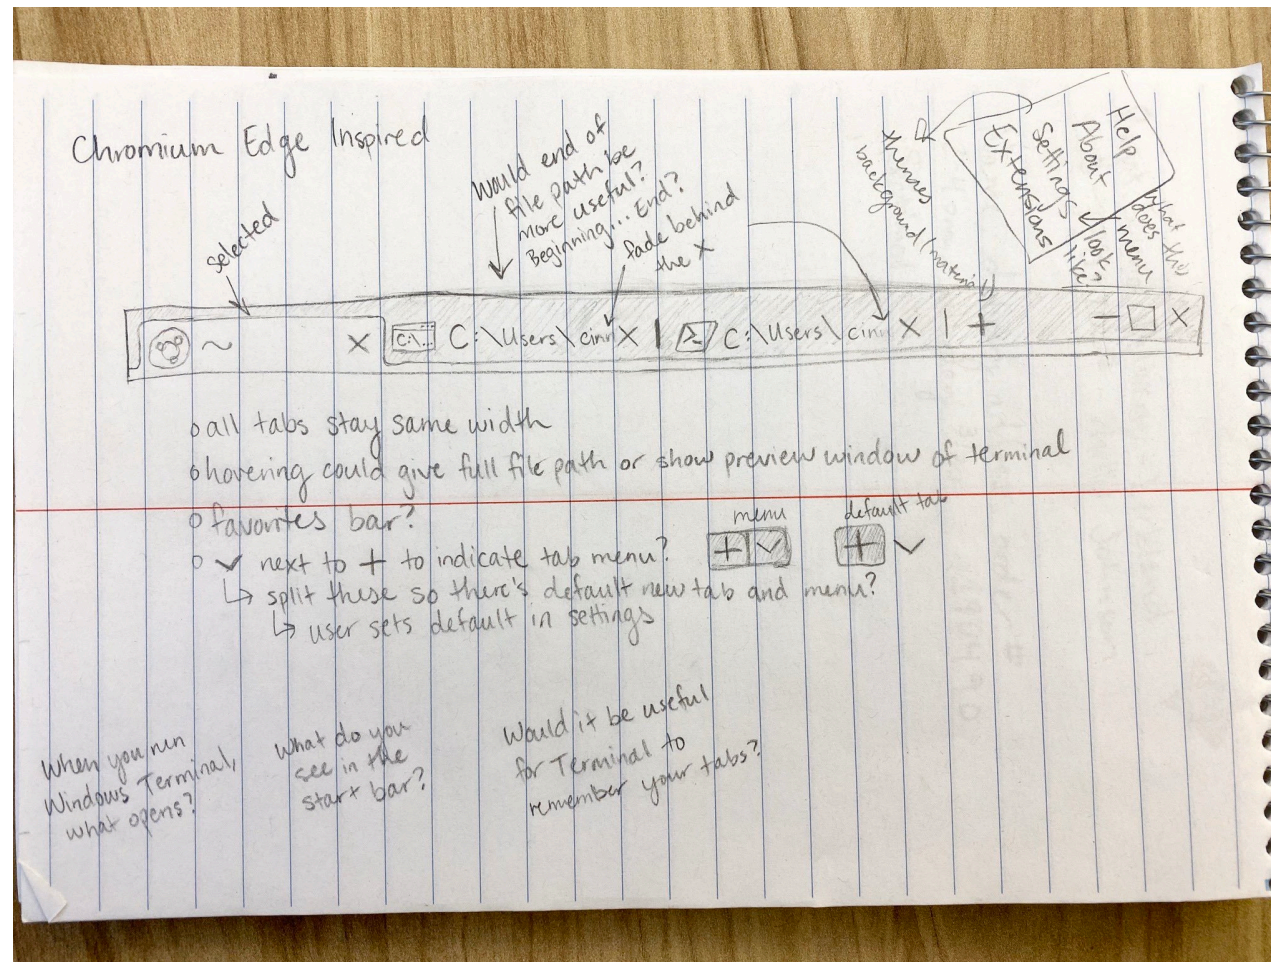 Chromium Edge Inspired
selected
Would end of
file path be
more useful?
Beginning... End?
fade behind
the X
themes
background (material)
Help
About
Settings
Extensions
what
does the
menu
look
like?
~ X C:\... C:\Users\cinn X | >_ C:\Users\cin X | + — □ X
o all tabs stay same width
o hovering could give full file path or show preview window of terminal
o favorites bar?
o ✓ next to + to indicate tab menu?
menu
default tab
↳ split these so there's default new tab and menu?
↳ user sets default in settings
When you run
Windows Terminal,
what opens?
What do you
see in the
start bar?
Would it be useful
for Terminal to
remember your tabs?